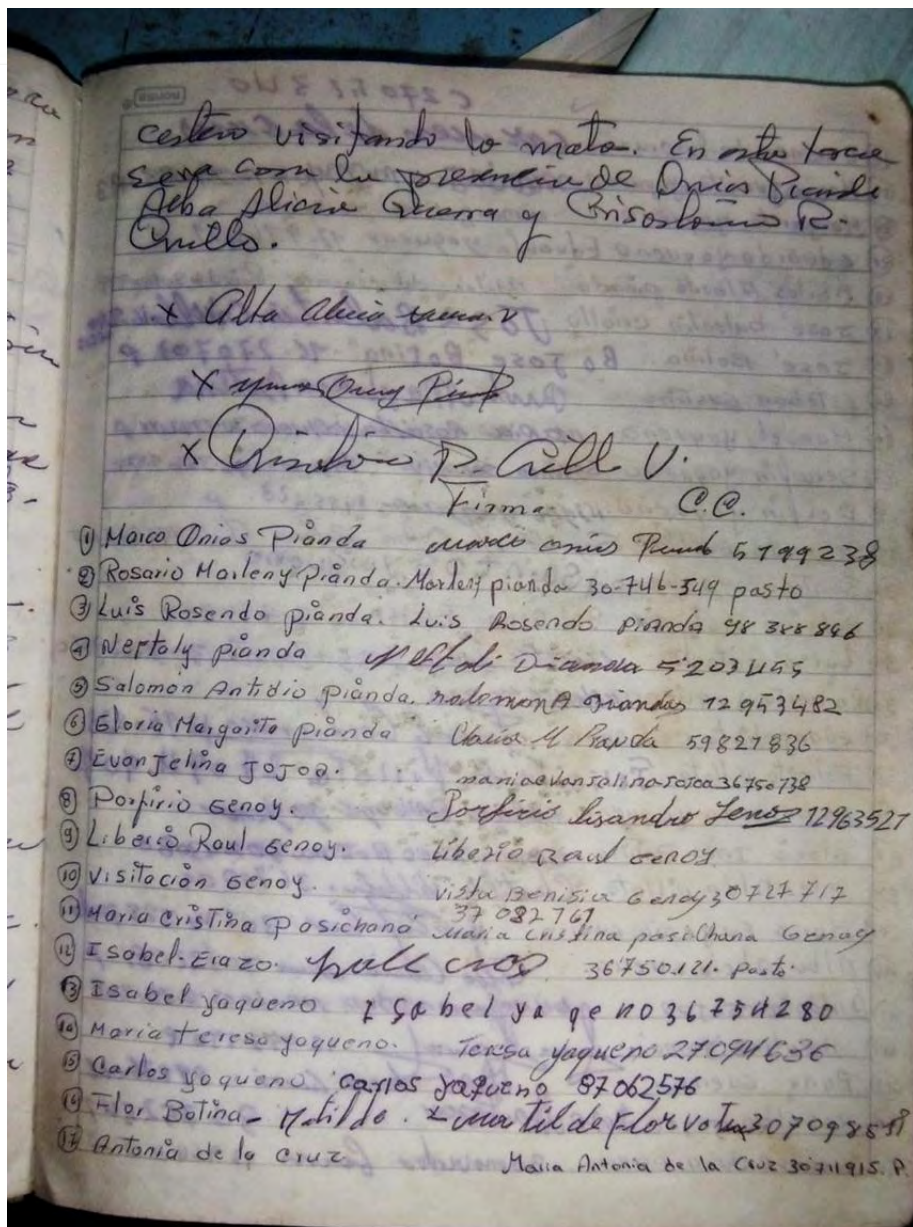 visitando la mata. En esta
sera con la presencia de Onias Pianda
Alba Alicia Guerra y Crisostomo R.
Criollo.
x Alba Alicia
x Onias
x P. Criollo V.
Firma C.C.
① Marco Onias Pianda marco onias 5199238
② Rosario Marleny Pianda. Marleny pianda 30-746-549 pasto
③ Luis Rosendo pianda. Luis Rosendo pianda 98 388 896
④ Neftaly pianda Neftali Pianda 5203455
⑤ Salomón Antidio pianda. salomon A Piandas 12 953482
⑥ Gloria Margarita pianda M Pianda 59827836
⑦ Evanjelina Jojoa. maria evanjelina Jojoa 36750738
⑧ Porfirio Genoy. Porfirio lisandro Genoy 12963527
⑨ Liberio Raul Genoy. Liberio Raul Genoy
⑩ Visitación Genoy. Benisia Genoy 30727717
37 082 761
⑪ Maria Cristina Pasichaná Maria Cristina pasiChana Genoy
⑫ Isabel-Erazo. 36750.121. Pasto.
⑬ Isabel yaqueno Isabel ya qeno 36754280
⑭ Maria teresa yaqueno. Teresa yaqueno 27094636
⑮ Carlos yaqueno carlos yaqueno 87062576
⑯ Flor Botina- Matilde. x matilde Flor
⑰ Antonia de la cruz Maria Antonia de la Cruz 30711915. P.